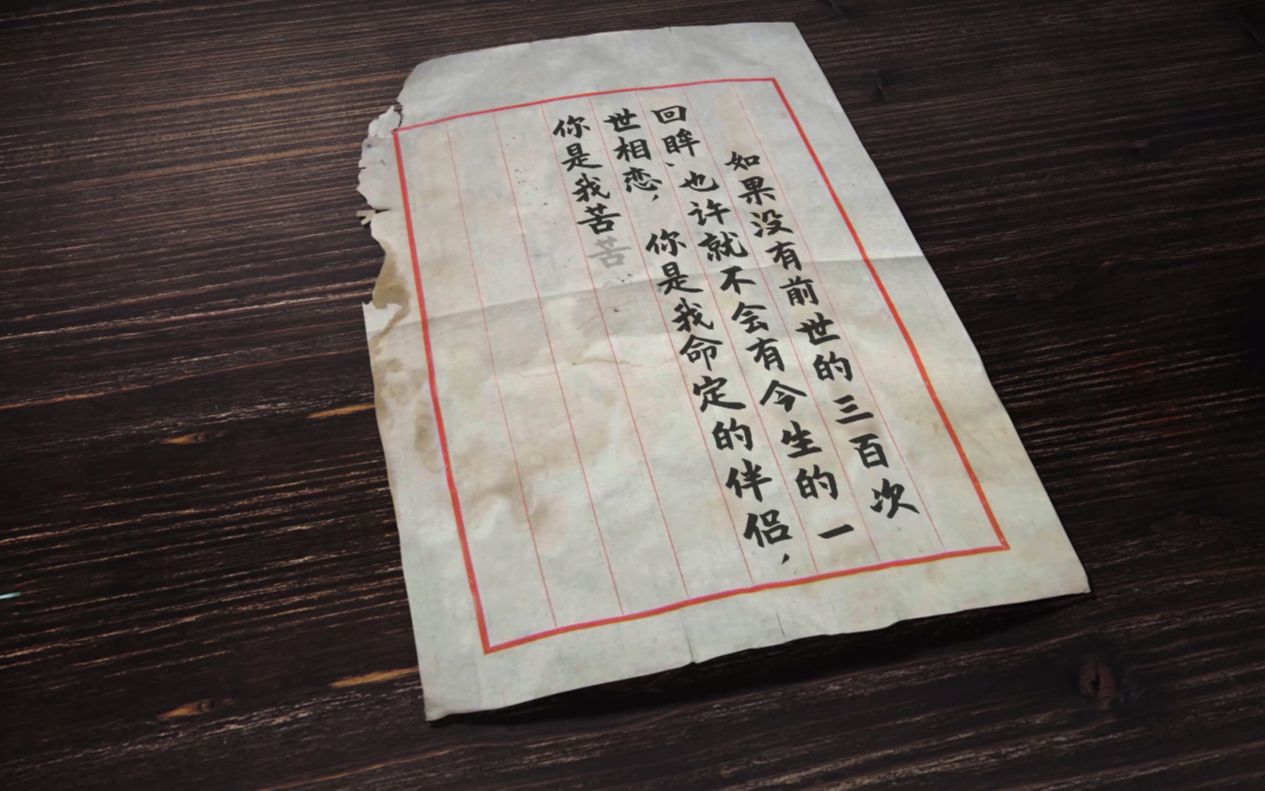 如果没有前世的三百次
回眸、也许就不会有今生的一
世相恋，你是我命定的伴侣，
你是我苦苦